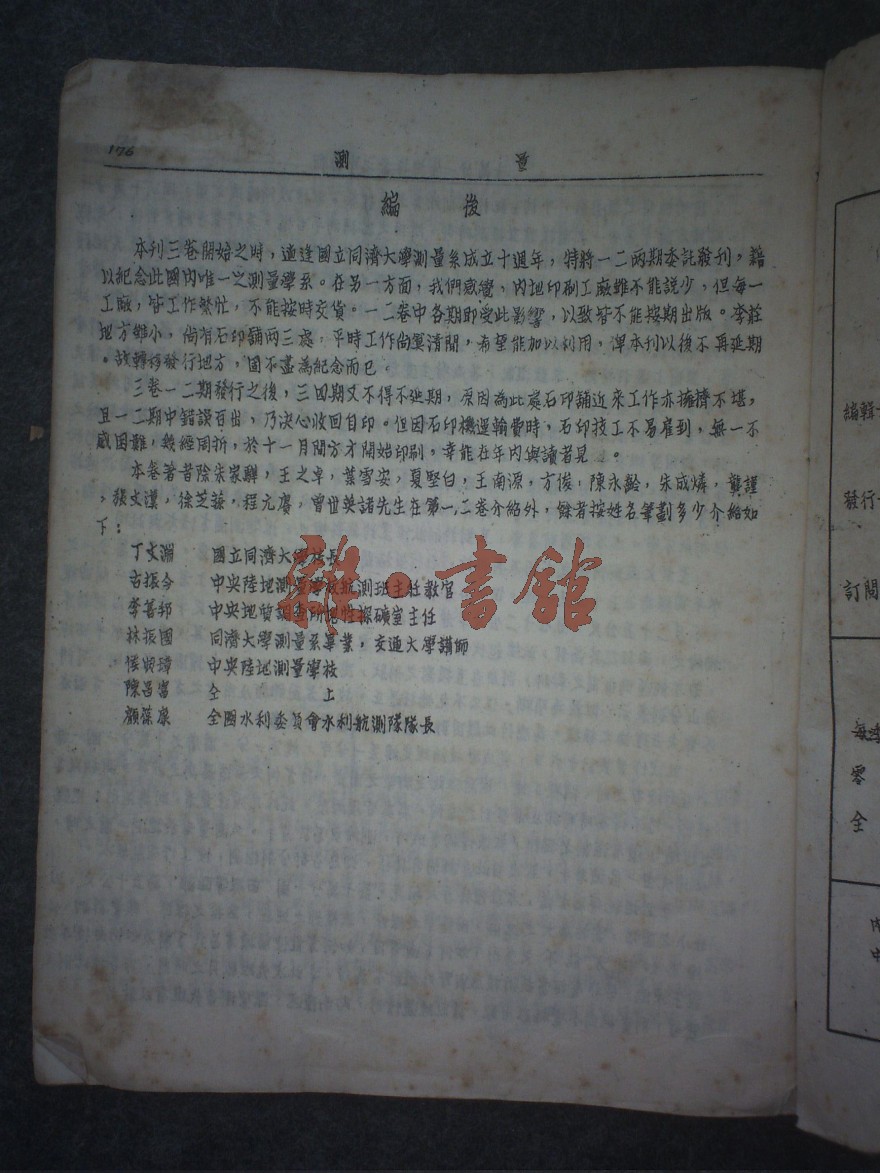 176
測 量
編 後
本刊三卷開始之時，適逢國立同濟大學測量系成立十週年，特將一二兩期委託發刊，藉
以紀念此國內唯一之測量學系。在另一方面，我們感覺，內地印刷工廠雖不能說少，但每一
工廠，皆工作繁忙，不能按時交貨。一二卷中各期即受此影響，以致皆不能按期出版。李莊
地方雖小，尚有石印舖兩三處，平時工作尚算清閒，希望能加以利用，俾本刊以後不再延期
。故轉移發行地方，固不盡為紀念而已。
三卷一二期發行之後，三四期又不得不延期，原因為此處石印舖近來工作亦擁擠不堪，
且一二期中錯誤百出，乃決心收回自印。但因石印機運輸費時，石印技工不易雇到，無一不
感困難，幾經周折，於十一月間方才開始印刷，幸能在年內與讀者見。
本卷著者除朱家驊，王之卓，葉雪安，夏堅白，王南源，方俊，陳永齡，朱成燐，龔謹
，張文漢，徐芝蓀，程元賡，曾世英諸先生在第一、二卷介紹外，餘者按姓名筆劃多少介紹如
下：
丁文淵 國立同濟大學校長
古振今 中央陸地測量學校航測班主任教官
李善邦 中央地質調查所地性探礦室主任
林振國 同濟大學測量系畢業，交通大學講師
中央陸地測量學校
陳昌富 仝 上
顧葆康 全國水利委員會水利航測隊隊長
雜·書館
編輯
發行
訂閱
每季
零
全
內
中